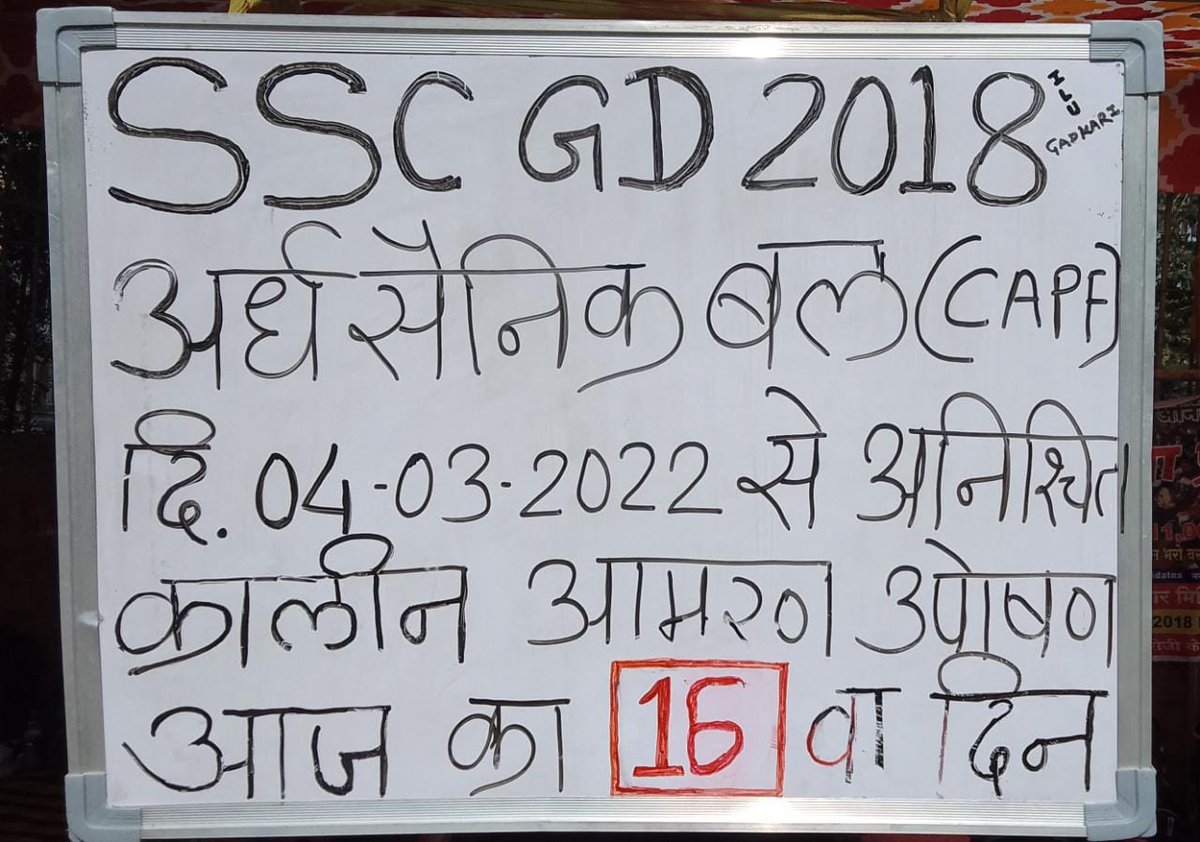 SSC GD 2018
ILU
GADKARI
अर्धसैनिक बल (CAPF)
दि. 04-03-2022 से अनिश्चित
कालीन आमरण उपोषण
आज का 16 वा दिन
11,0
idates
2018